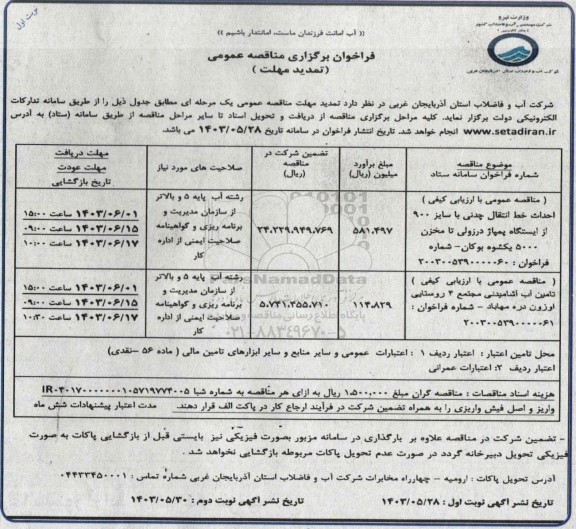 نوبت اول
وزارت نیرو
شرکت آب و فاضلاب استان آذربایجان غربی
(( آب امانت فرزندان ماست، امانتدار باشیم ))
فراخوان برگزاری مناقصه عمومی
( تمدید مهلت )
شرکت آب و فاضلاب استان آذربایجان غربی در نظر دارد تمدید مهلت مناقصه عمومی یک مرحله ای مطابق جدول ذیل را از طریق سامانه تدارکات
الکترونیکی دولت برگزار نماید. کلیه مراحل برگزاری مناقصه از دریافت و تحویل اسناد تا سایر مراحل مناقصه از طریق سامانه (ستاد) به آدرس
www.setadiran.ir انجام خواهد شد. تاریخ انتشار فراخوان در سامانه تاریخ ۱۴۰۳/۰۵/۲۸ می باشد.
موضوع مناقصه
شماره فراخوان سامانه ستاد
مبلغ برآورد
میلیون (ریال)
تضمین شرکت در
مناقصه
(ریال)
صلاحیت های مورد نیاز
مهلت دریافت
مهلت عودت
تاریخ بازگشایی
( مناقصه عمومی با ارزیابی کیفی )
احداث خط انتقال چدنی با سایز ۹۰۰
از ایستگاه پمپاژ درزولی تا مخزن
۵۰۰۰ یکشوه بوکان– شماره
فراخوان : ۲۰۰۳۰۰۵۳۹۰۰۰۰۰۶۰
۵۸۱.۴۹۷
۲۴.۲۲۹.۹۴۹.۷۶۹
رشته آب پایه ۵ و بالاتر
از سازمان مدیریت و
برنامه ریزی و گواهینامه
صلاحیت ایمنی از اداره
کار
۱۴۰۳/۰۶/۰۱ ساعت ۱۵:۰۰
۱۴۰۳/۰۶/۱۵ ساعت ۰۹:۰۰
۱۴۰۳/۰۶/۱۷ ساعت ۱۰:۰۰
( مناقصه عمومی با ارزیابی کیفی )
تامین آب آشامیدنی مجتمع ۴ روستایی
اوزون دره مهاباد – شماره فراخوان :
۲۰۰۳۰۰۵۳۹۰۰۰۰۰۶۱
۱۱۴.۸۲۹
۵.۷۴۱.۴۵۵.۷۱۰
رشته آب پایه ۵ و بالاتر
از سازمان مدیریت و
برنامه ریزی و گواهینامه
صلاحیت ایمنی از اداره
کار
۱۴۰۳/۰۶/۰۱ ساعت ۱۵:۰۰
۱۴۰۳/۰۶/۱۵ ساعت ۰۹:۰۰
۱۴۰۳/۰۶/۱۷ ساعت ۱۰:۳۰
ParsNamadData
پایگاه اطلاع رسانی مناقصه
۰۲۱-۸۸۳۴۹۶۷۰-۵
محل تامین اعتبار : اعتبار ردیف ۱ : اعتبارات عمومی و سایر منابع و سایر ابزارهای تامین مالی ( ماده ۵۶ –نقدی)
اعتبار ردیف ۲: اعتبارات عمرانی
هزینه اسناد مناقصات : مناقصه گران مبلغ ۱.۵۰۰.۰۰۰ ریال به ازای هر مناقصه به شماره شبا IR۰۴۰۱۷۰۰۰۰۰۰۰۱۰۵۷۱۹۷۷۴۰۰۵
واریز و اصل فیش واریزی را به همراه تضمین شرکت در فرآیند ارجاع کار در پاکت الف قرار دهند. مدت اعتبار پیشنهادات شش ماه
– تضمین شرکت در مناقصه علاوه بر بارگذاری در سامانه مزبور بصورت فیزیکی نیز بایستی قبل از بازگشایی پاکات به صورت
فیزیکی تحویل دبیرخانه گردد در صورت عدم تحویل پاکات مربوطه بازگشایی نخواهد شد .
آدرس تحویل پاکات : ارومیه – چهارراه مخابرات شرکت آب و فاضلاب استان آذربایجان غربی شماره تماس : ۰۴۴۳۳۴۵۰۰۰۱
تاریخ نشر آگهی نوبت اول : ۱۴۰۳/۰۵/۲۸
تاریخ نشر آگهی نوبت دوم : ۱۴۰۳/۰۵/۳۰